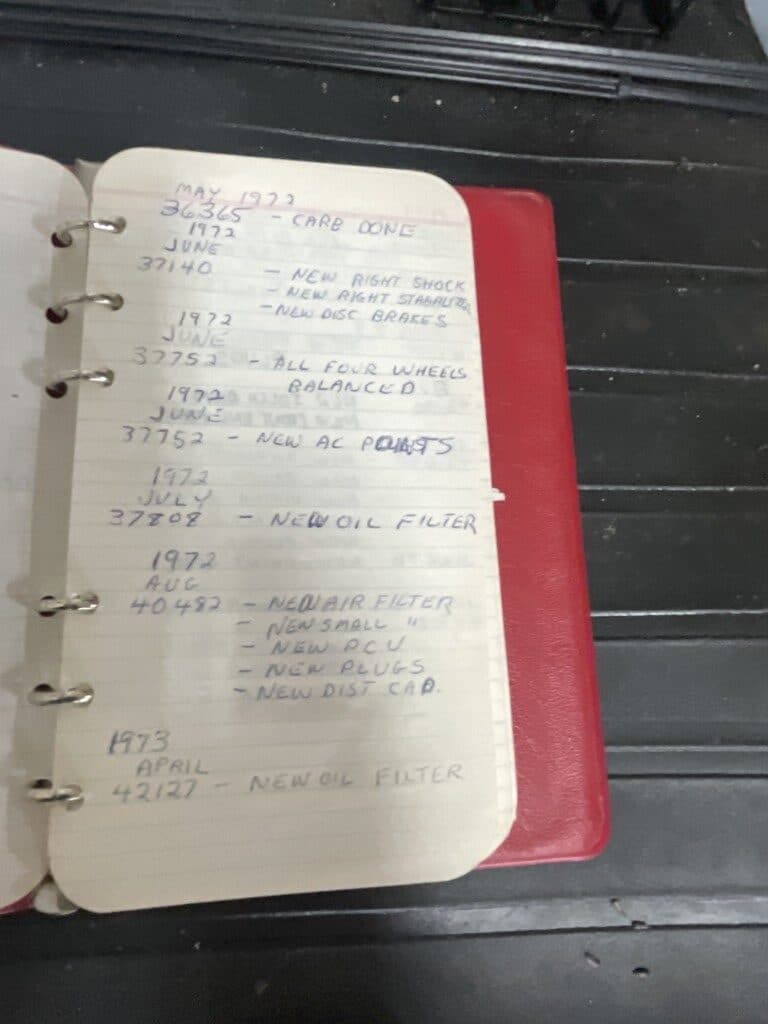 MAY 1972
36365 - CARB DONE
1972
JUNE
37140 - NEW RIGHT SHOCK
- NEW RIGHT STABALIZER
- NEW DISC BRAKES
1972
JUNE
37752 - ALL FOUR WHEELS
BALANCED
1972
JUNE
37752 - NEW AC POINTS
1972
JULY
37808 - NEW OIL FILTER
1972
AUG
40482 - NEW AIR FILTER
- NEW SMALL "
- NEW PCV
- NEW PLUGS
- NEW DIST CAP.
1973
APRIL
42127 - NEW OIL FILTER